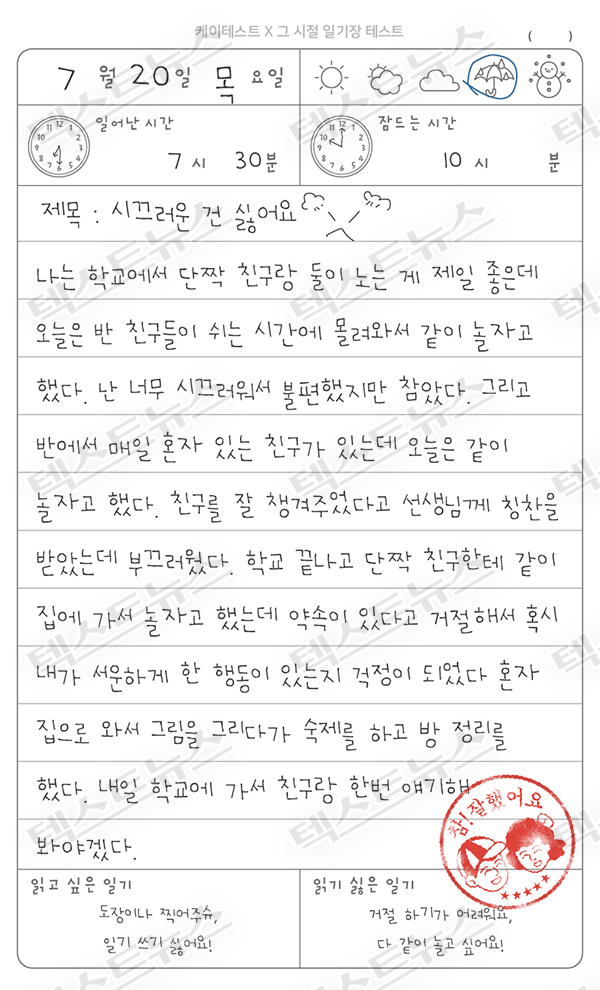 케이테스트 X 그 시절 일기장 테스트
( )
7 월 20일 목 요일
일어난 시간
7 시 30분
잠드는 시간
10 시 분
제목 : 시끄러운 건 싫어요
나는 학교에서 단짝 친구랑 둘이 노는 게 제일 좋은데
오늘은 반 친구들이 쉬는 시간에 몰려와서 같이 놀자고
했다. 난 너무 시끄러워서 불편했지만 참았다. 그리고
반에서 매일 혼자 있는 친구가 있는데 오늘은 같이
놀자고 했다. 친구를 잘 챙겨주었다고 선생님께 칭찬을
받았는데 부끄러웠다. 학교 끝나고 단짝 친구한테 같이
집에 가서 놀자고 했는데 약속이 있다고 거절해서 혹시
내가 서운하게 한 행동이 있는지 걱정이 되었다 혼자
집으로 와서 그림을 그리다가 숙제를 하고 방 정리를
했다. 내일 학교에 가서 친구랑 한번 얘기해
봐야겠다.
참!잘했어요
읽고 싶은 일기
도장이나 찍어주슈,
일기 쓰기 싫어요!
읽기 싫은 일기
거절 하기가 어려워요,
다 같이 놀고 싶어요!
텍스트뉴스